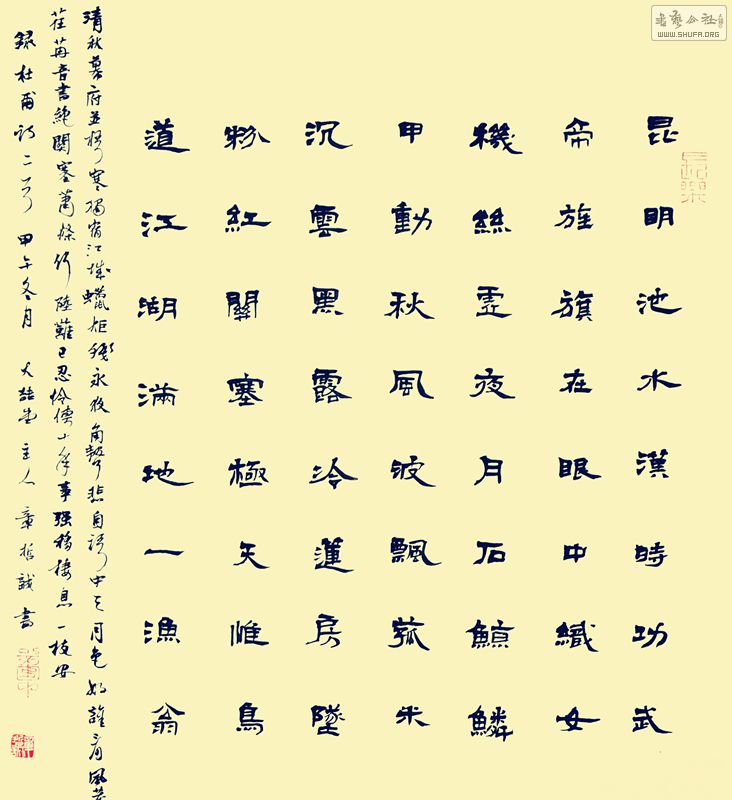 书艺公社
WWW.SHUFA.ORG
昆明池水漢時功武
帝旌旗在眼中織女
機絲虛夜月石鯨鱗
甲動秋風波飄菰米
沉雲黑露冷蓮房墜
粉紅關塞極天惟鳥
道江湖滿地一漁翁
清秋幕府井梧寒獨宿江城蠟炬殘永夜角聲悲自語中天月色好誰看風塵
荏苒音書絕關塞蕭條行路難已忍伶俜十年事強移棲息一枝安
錄杜甫詩二首 甲午冬月 大 堂主人 章哲誠書